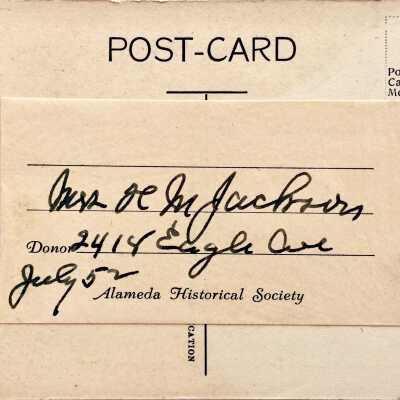 POST-CARD
Po
Ca
Me
Mrs H M Jackson
Donor 2414 Eagle Ave
July 52
Alameda Historical Society
CATION